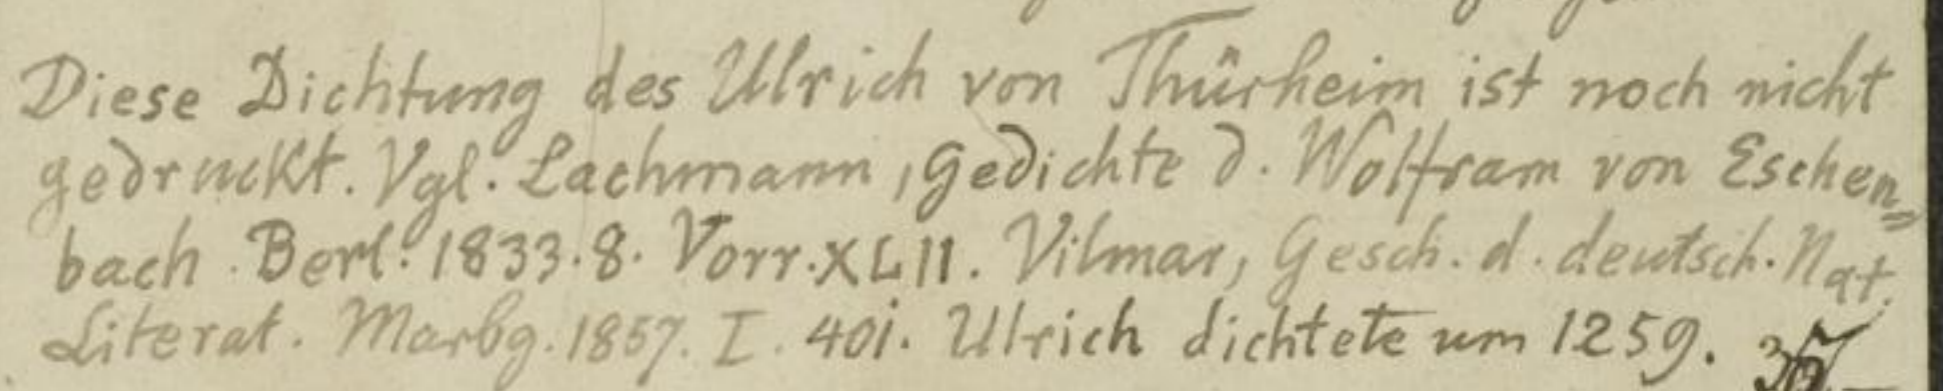 Diese Dichtung des Ulrich von Thürheim ist noch nicht
gedruckt. Vgl. Lachmann, Gedichte d. Wolfram von Eschen=
bach. Berl. 1833. 8. Vorr. XLII. Vilmar, Gesch. d. deutsch. Nat.
Literat. Marbg. 1857. I. 401. Ulrich dichtete um 1259.